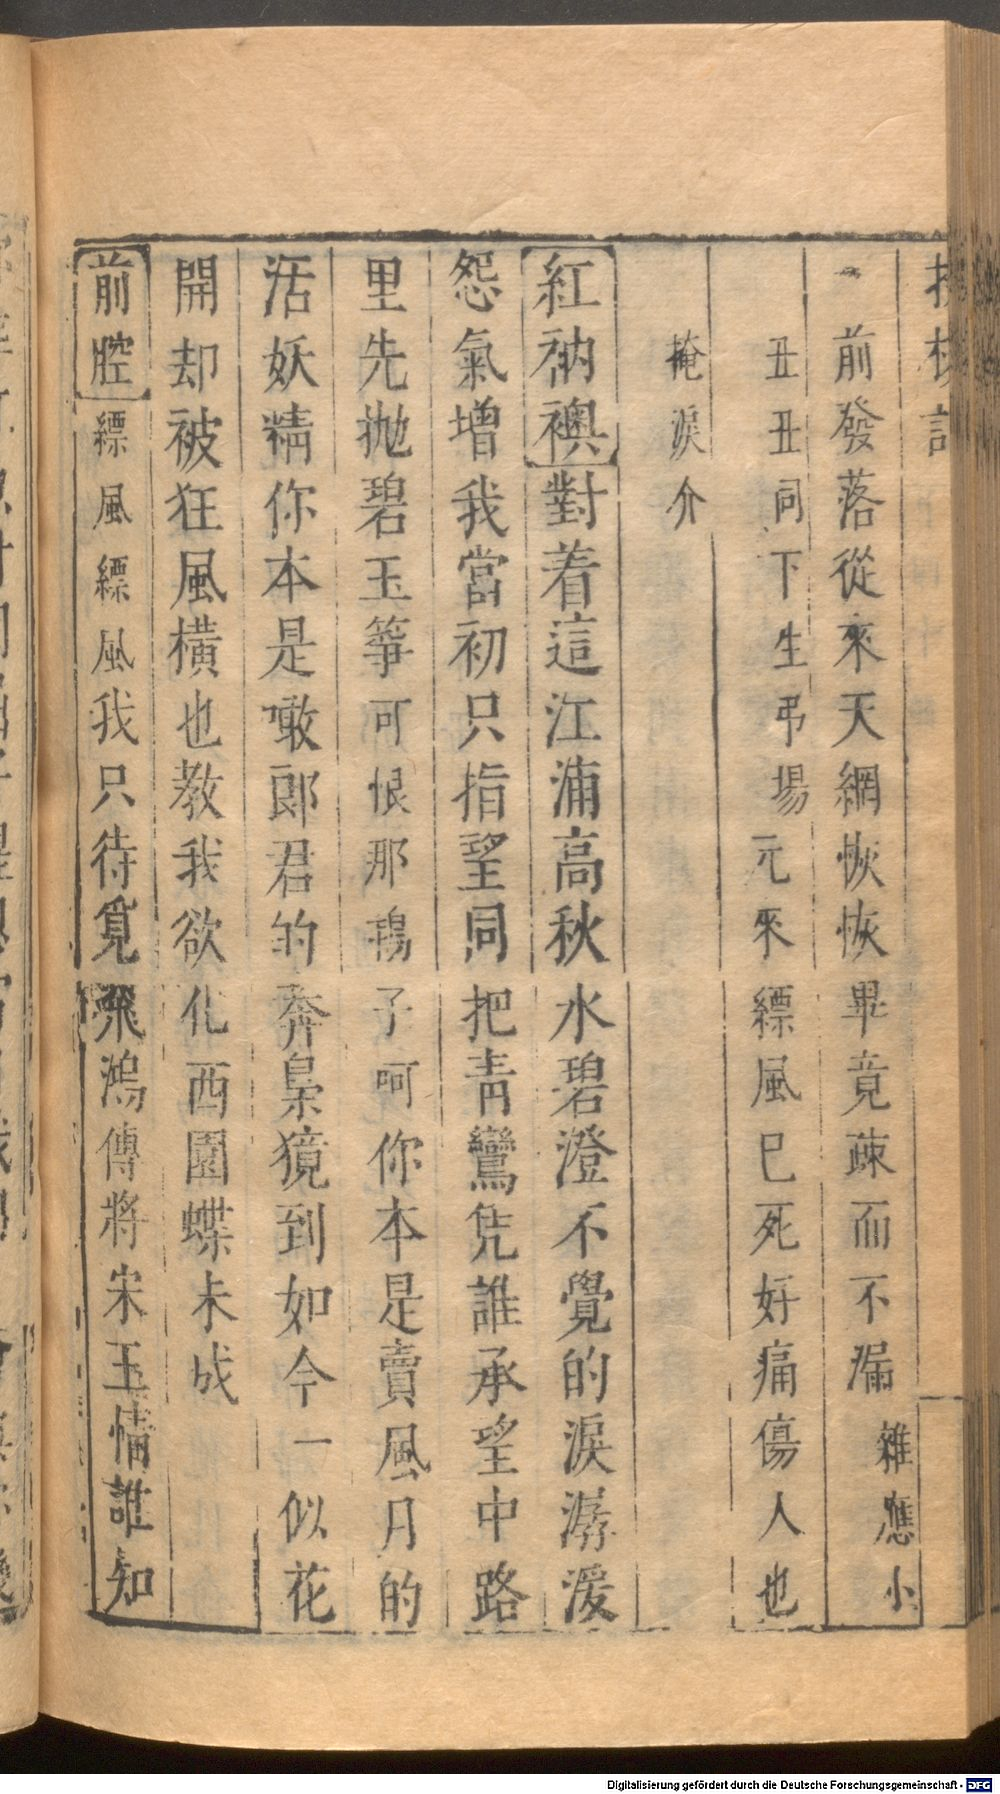 前發落從來天網恢恢畢竟疎而不漏雜應小
丑丑同下生弔場元來縹風已死好痛傷人也
掩淚介
紅衲襖對着這江浦高秋水碧澄不覺的淚潺湲
怨氣增我當初只指望同把靑鸞凭誰承望中路
里先抛碧玉箏可恨那鴇子呵你本是賣風月的
活妖精你本是噉郎君的奔梟獍到如今一似花
開却被狂風橫也教我欲化西園蝶未成
前腔縹風縹風我只待覓飛鴻傳將宋玉情誰知
Digitalisierung gefördert durch die Deutsche Forschungsgemeinschaft - DFG